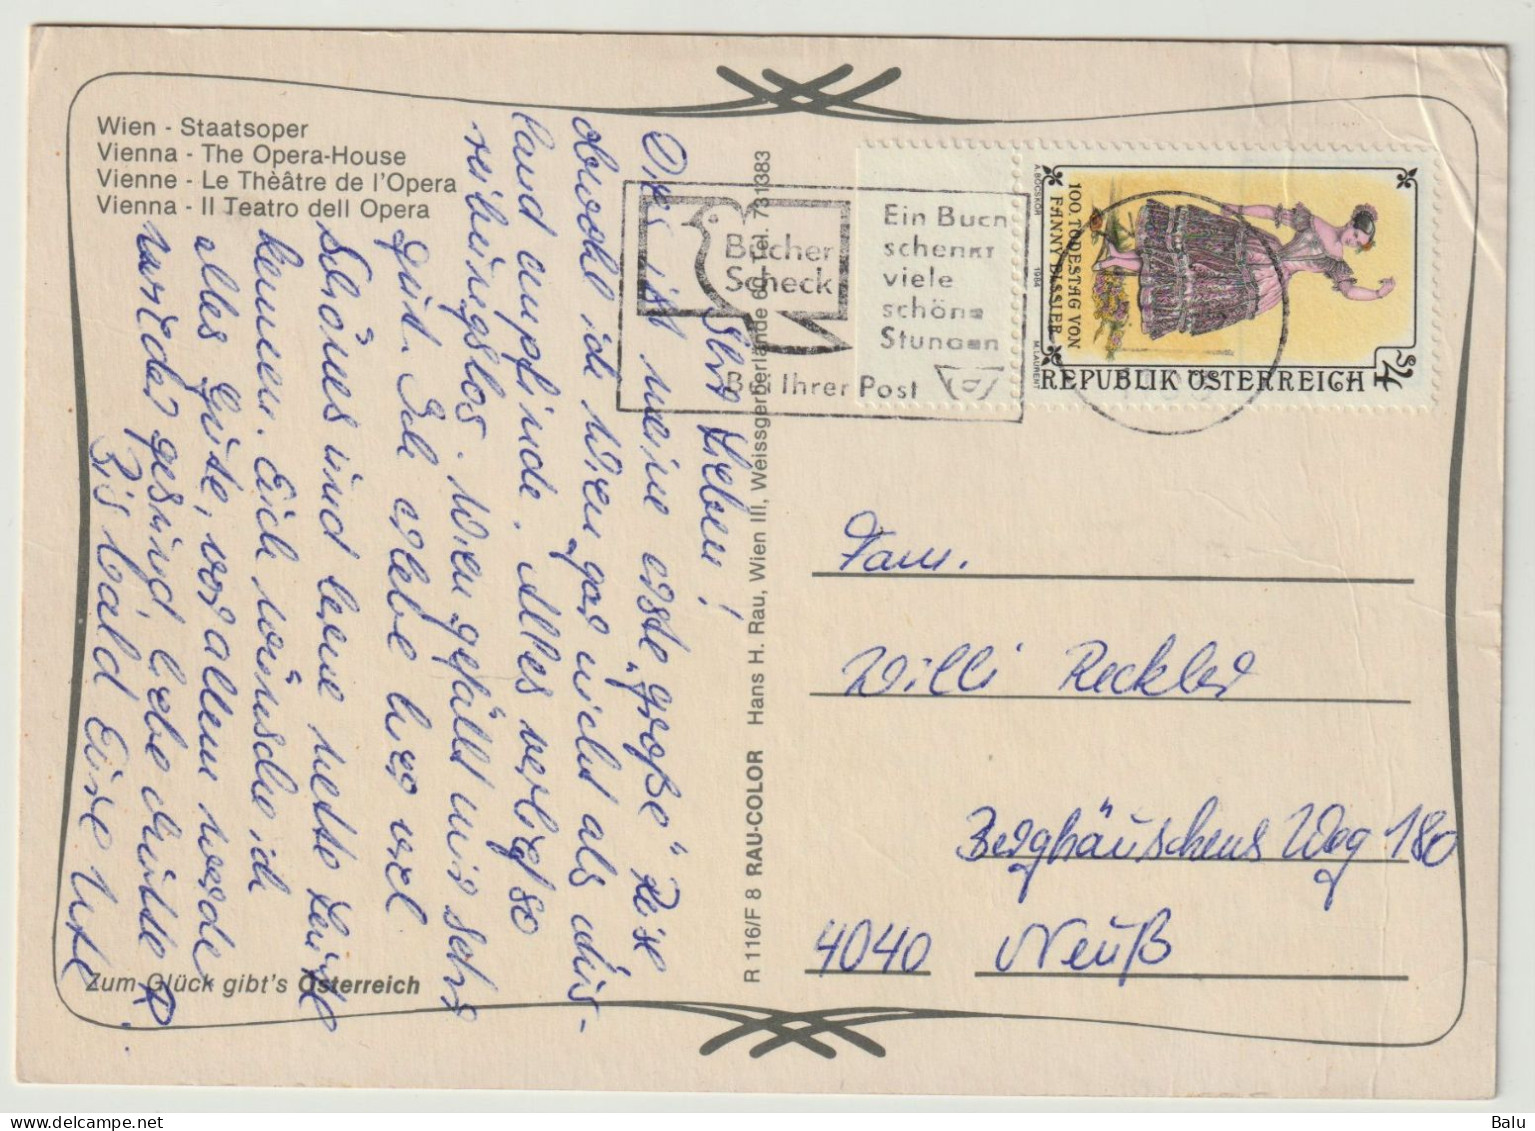 Wien - Staatsoper
Vienna - The Opera-House
Vienne - Le Thèâtre de l'Opera
Vienna - Il Teatro dell Opera
Ihr Lieben!
Dies ist meine erste „große" Reise
obwohl ich Wien gar nicht als Aus-
land empfinde. Alles verlief so
reibungslos. Wien gefällt mir sehr
gut. Ich erlebe hier viel
Schönes und lerne nette Leute
kennen. Euch wünsche ich
alles Gute, vor allem werde
wieder gesund liebe
Bis bald Eure Ute
Zum Glück gibt's Österreich
R 116/F 8 RAU-COLOR Hans H. Rau, Wien III, Weissgerberlände 60, Tel. 731383
Bücher
Scheck
Ein Buch
schenkt
viele
schöne
Stunden
Bei Ihrer Post
100. TODESTAG VON
FANNY ELSSLER
A. BÖCSKÖR 1984 M. LAURENT
REPUBLIK ÖSTERREICH
S 4
Fam.
Willi Reckler
Berghäuschens Weg 180
4040 Neuß
Balu